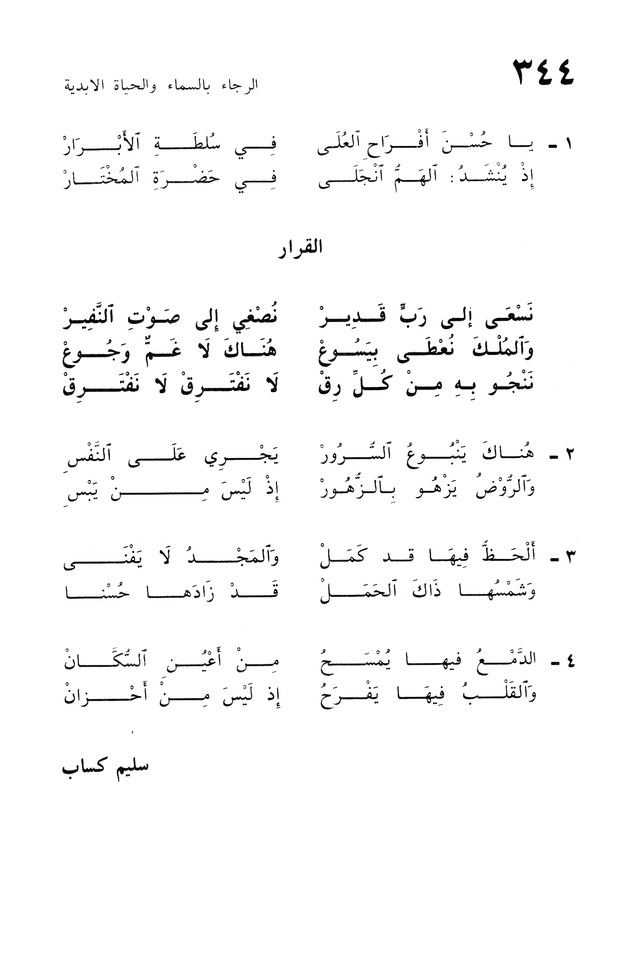 ٣٤٤
الرجاء بالسماء والحياة الابدية
١ ـ يـا حُسْنَ أَفْرَاحِ ٱلعُلَى في سُلطَةِ ٱلأَبْرَارْ
إِذْ يُنْشَدُ: ٱلهَمُّ ٱنْجَلَى في حَضْرَةِ ٱلمُخْتَارْ
القرار
نَسْعَى إلى رَبٍّ قَدِيرْ نُصْغِي إِلى صَوْتِ ٱلنَّفِيرْ
وَٱلمُلْكَ نُعْطَى بِيَسُوعْ هُنَاكَ لَا غَمٌّ وَجُوعْ
نَنْجُو بِهِ مِنْ كُلِّ رِقْ لَا نَفْتَرِقْ لَا نَفْتَرِقْ
٢ ـ هُنَاكَ يَنْبُوعُ ٱلسُّرُورْ يَجْرِي عَلَى ٱلنَّفْسِ
وَٱلرَّوْضُ يَزْهُو بِٱلزُّهُورْ إِذْ لَيْسَ مِنْ يَبْسِ
٣ ـ أَلْحَظُّ فِيهَا قد كَمَلْ وَٱلمَجْدُ لَا يَفْنَى
وَشَمْسُهَا ذَاكَ ٱلحَمَلْ قَدْ زَادَهَا حُسْنا
٤ ـ الدَّمْعُ فيها يُمْسَحُ مِنْ أَعْيُنِ ٱلسُّكَّانْ
وَٱلقَلْبُ فِيهَا يَفْرَحُ إذ لَيْسَ مِنْ أَحْزَانْ
سليم كساب